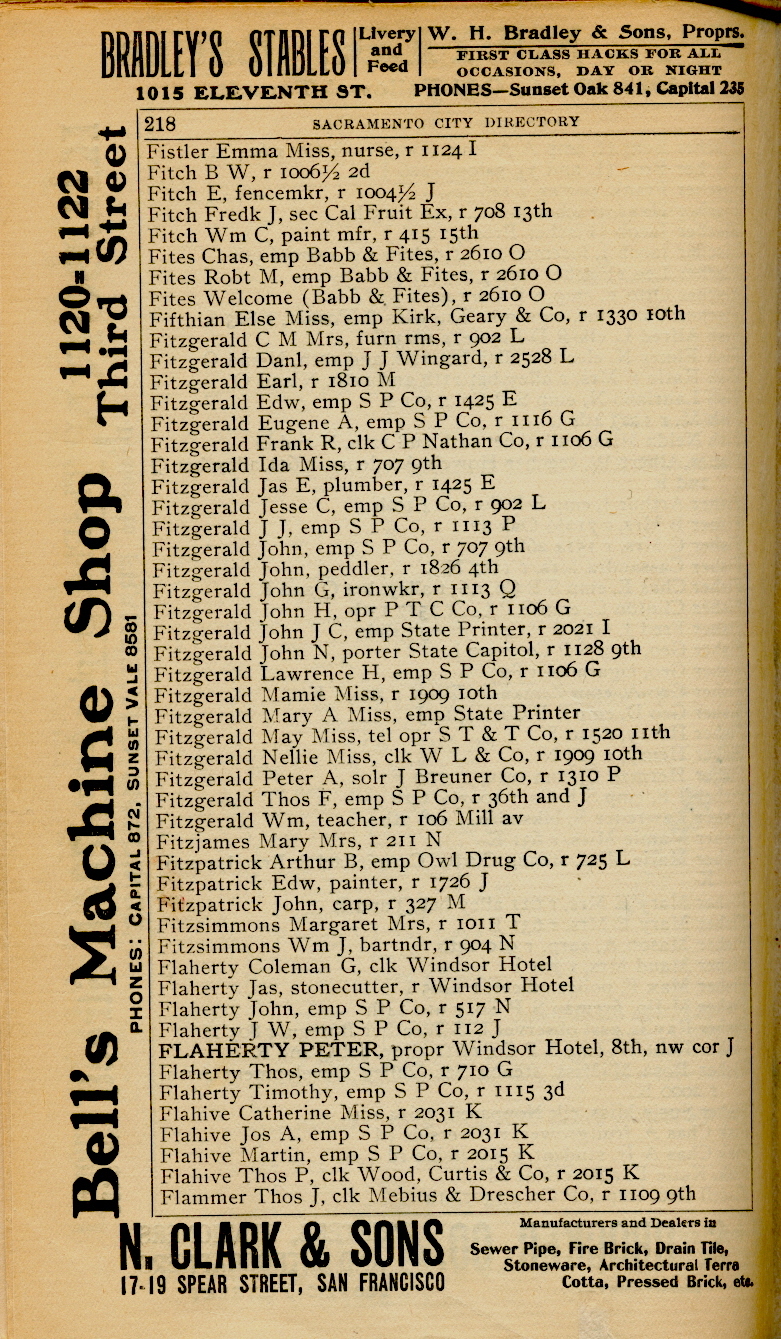 BRADLEY'S STABLES Livery and Feed W. H. Bradley & Sons, Proprs.
FIRST CLASS HACKS FOR ALL
OCCASIONS, DAY OR NIGHT
1015 ELEVENTH ST. PHONES—Sunset Oak 841, Capital 235
218 SACRAMENTO CITY DIRECTORY
Fistler Emma Miss, nurse, r 1124 I
Fitch B W, r 1006½ 2d
Fitch E, fencemkr, r 1004½ J
Fitch Fredk J, sec Cal Fruit Ex, r 708 13th
Fitch Wm C, paint mfr, r 415 15th
Fites Chas, emp Babb & Fites, r 2610 O
Fites Robt M, emp Babb & Fites, r 2610 O
Fites Welcome (Babb & Fites), r 2610 O
Fifthian Else Miss, emp Kirk, Geary & Co, r 1330 10th
Fitzgerald C M Mrs, furn rms, r 902 L
Fitzgerald Danl, emp J J Wingard, r 2528 L
Fitzgerald Earl, r 1810 M
Fitzgerald Edw, emp S P Co, r 1425 E
Fitzgerald Eugene A, emp S P Co, r 1116 G
Fitzgerald Frank R, clk C P Nathan Co, r 1106 G
Fitzgerald Ida Miss, r 707 9th
Fitzgerald Jas E, plumber, r 1425 E
Fitzgerald Jesse C, emp S P Co, r 902 L
Fitzgerald J J, emp S P Co, r 1113 P
Fitzgerald John, emp S P Co, r 707 9th
Fitzgerald John, peddler, r 1826 4th
Fitzgerald John G, ironwkr, r 1113 Q
Fitzgerald John H, opr P T C Co, r 1106 G
Fitzgerald John J C, emp State Printer, r 2021 I
Fitzgerald John N, porter State Capitol, r 1128 9th
Fitzgerald Lawrence H, emp S P Co, r 1106 G
Fitzgerald Mamie Miss, r 1909 10th
Fitzgerald Mary A Miss, emp State Printer
Fitzgerald May Miss, tel opr S T & T Co, r 1520 11th
Fitzgerald Nellie Miss, clk W L & Co, r 1909 10th
Fitzgerald Peter A, solr J Breuner Co, r 1310 P
Fitzgerald Thos F, emp S P Co, r 36th and J
Fitzgerald Wm, teacher, r 106 Mill av
Fitzjames Mary Mrs, r 211 N
Fitzpatrick Arthur B, emp Owl Drug Co, r 725 L
Fitzpatrick Edw, painter, r 1726 J
Fitzpatrick John, carp, r 327 M
Fitzsimmons Margaret Mrs, r 1011 T
Fitzsimmons Wm J, bartndr, r 904 N
Flaherty Coleman G, clk Windsor Hotel
Flaherty Jas, stonecutter, r Windsor Hotel
Flaherty John, emp S P Co, r 517 N
Flaherty J W, emp S P Co, r 112 J
FLAHERTY PETER, propr Windsor Hotel, 8th, nw cor J
Flaherty Thos, emp S P Co, r 710 G
Flaherty Timothy, emp S P Co, r 1115 3d
Flahive Catherine Miss, r 2031 K
Flahive Jos A, emp S P Co, r 2031 K
Flahive Martin, emp S P Co, r 2015 K
Flahive Thos P, clk Wood, Curtis & Co, r 2015 K
Flammer Thos J, clk Mebius & Drescher Co, r 1109 9th
Bell's Machine Shop 1120=1122 Third Street
PHONES: CAPITAL 872, SUNSET VALE 8581
N. CLARK & SONS
17-19 SPEAR STREET, SAN FRANCISCO
Manufacturers and Dealers in
Sewer Pipe, Fire Brick, Drain Tile,
Stoneware, Architectural Terra
Cotta, Pressed Brick, etc.